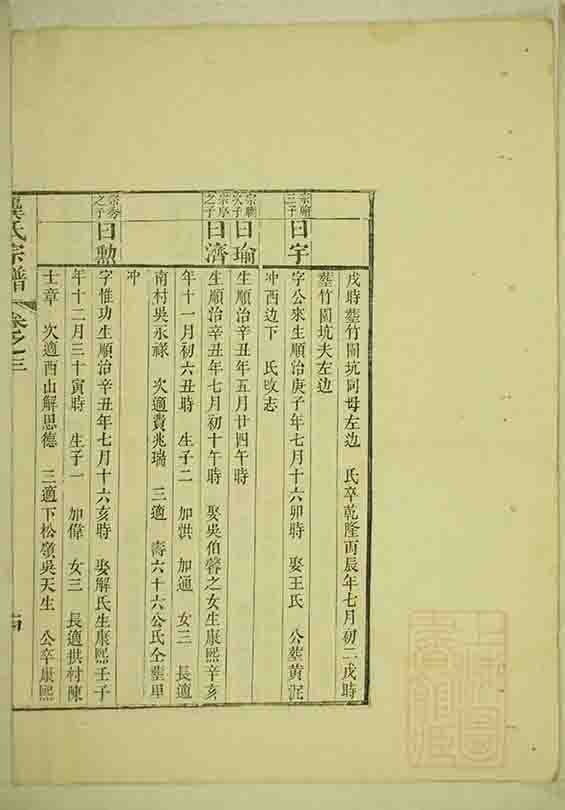 戌時塟竹園坑同母左边　氏卒乾隆丙辰年七月初二戌時
塟竹園坑夫左边
宗
三子
曰宇
字公來生順治庚子年七月十六卯時　娶王氏　公塟黄泥
冲西边下　氏改志
宗
次子
曰瑜
生順治辛丑年五月廿四午時
宗序
之子
曰濟
生順治辛丑年七月初十午時　娶吳伯蓉之女生康熙辛亥
年十一月初六丑時　生子二　加洪　加通　女三　長適
南村吳永祿　次適費兆瑞　三適　壽六十六公氏仝塟里
冲
宗秀
之子
曰勲
字惟功生順治辛丑年七月十六亥時　娶解氏生康熙壬子
年十二月三十寅時　生子一　加偉　女三　長適拱村陳
士章　次適西山解思德　三適下松嶺吳天生　公卒康熙
氏宗譜　卷之三